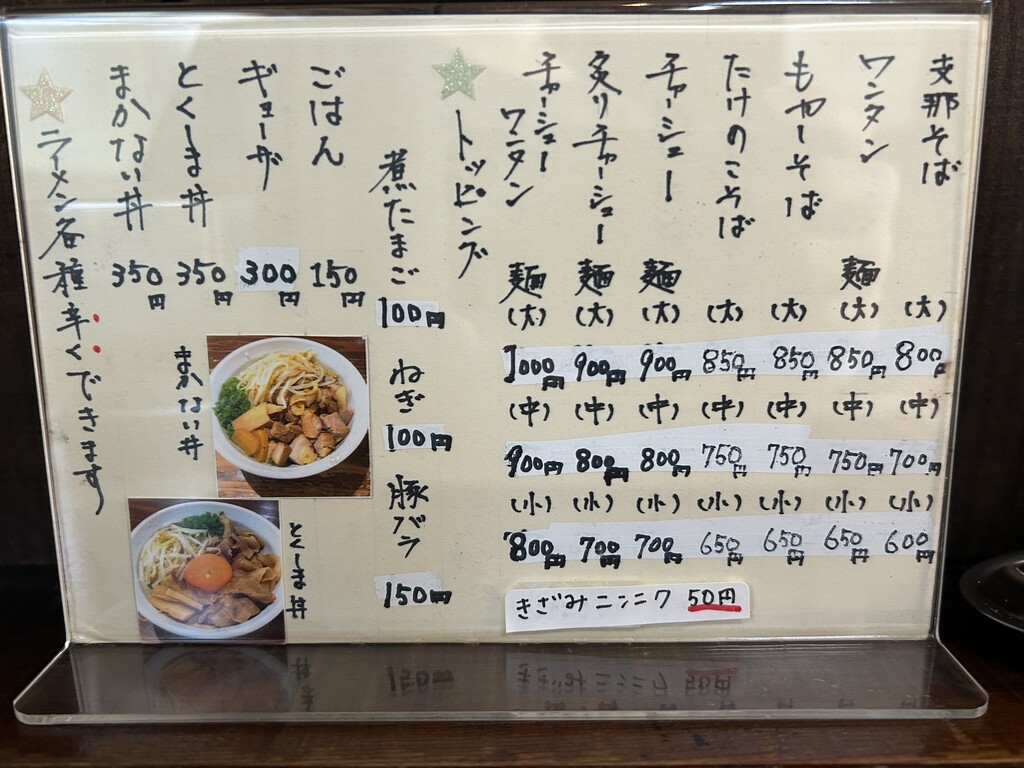 支那そば
(大)
800円
(中)
700円
(小)
600円
ワンタン麺
(大)
850円
(中)
750円
(小)
650円
もやしそば
(大)
850円
(中)
750円
(小)
650円
たけのこそば
(大)
850円
(中)
750円
(小)
650円
チャーシュー麺
(大)
900円
(中)
800円
(小)
700円
炙りチャーシュー麺
(大)
900円
(中)
800円
(小)
700円
チャーシュー
ワンタン麺
(大)
1000円
(中)
900円
(小)
800円
きざみニンニク 50円
トッピング
煮たまご
100円
ねぎ
100円
豚バラ
150円
ごはん
150円
ギョーザ
300円
とくしま丼
350円
まかない丼
350円
まかない丼
とくしま丼
ラーメン各種辛くできます